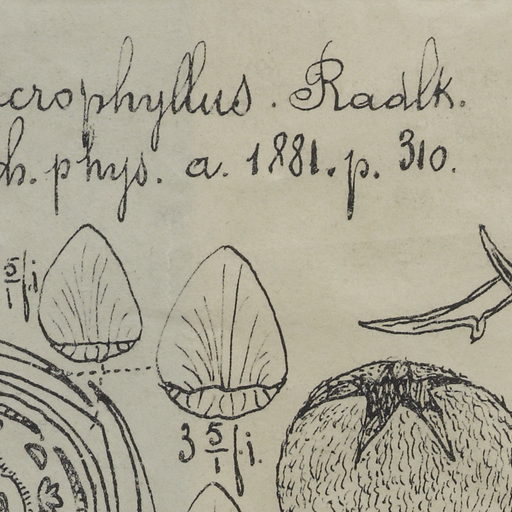 crophyllus. Radlk.
h. phys. a. 1881. p. 310.
5/1 f.i.
3 5/1 f.i.